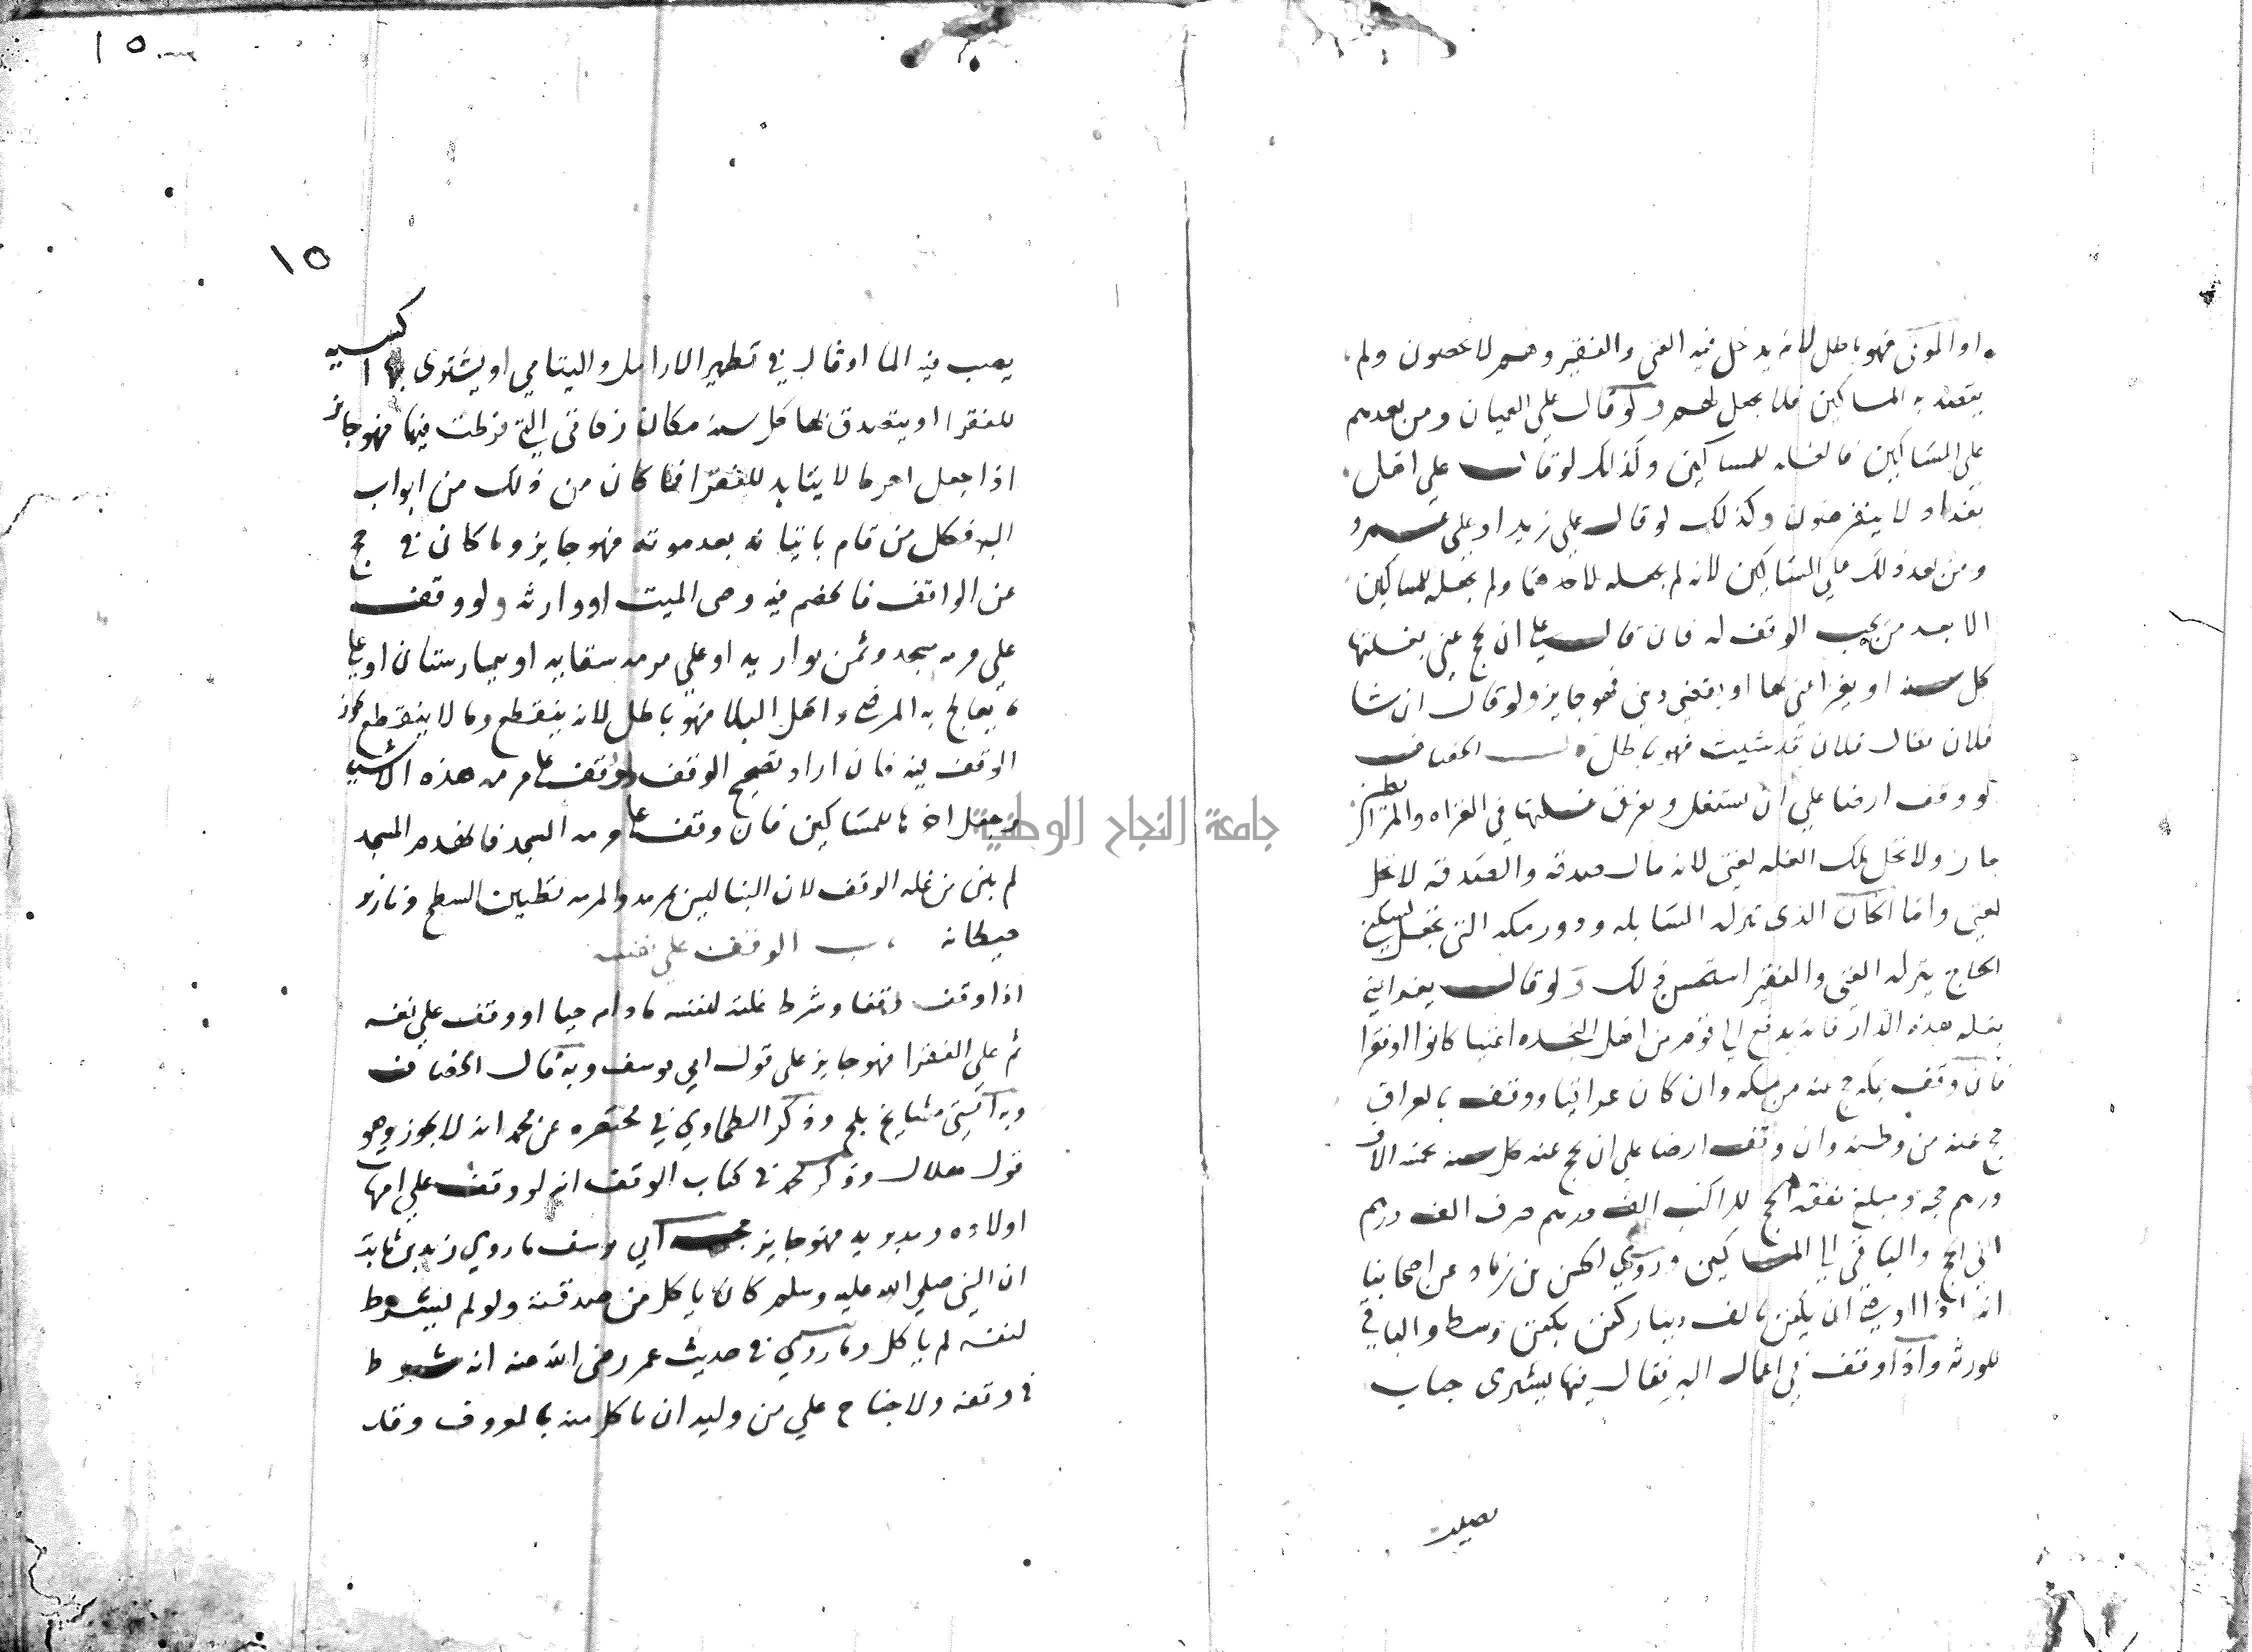 او الموتى فهو باطل لانه يدخل فيه الغنى والفقير وهم لا يحصون ولم
يقصد به المساكين فلا يجعل لهم ولو قال على العميان ومن بعدهم
على المساكين فالغله للمساكين وكذلك لو قال على اهل
بغداد لا ينقرضون وكذلك لو قال على زيد او على عمرو
ومن بعد ذلك على المساكين لانه لم يجعله لاحدهما ولم يجعله للمساكين
الا بعد من يجب الوقف له فان قال على ان يحج عنى بغلتها
كل سنه او يغزا عني بها او يقضى ديني فهو جايز ولو قال ان شا
فلان فقال فلان قد شيت فهو باطل قال الخصاف
لو وقف ارضا على ان تستغل وتفرق غلتها في الغزاه نظر
جاز ولا تحل تلك الغله لغنى لانه مال صدقه والصدقه لا تحل
لغنى واما الخان الذى تنزله السابله ودور مكه التى تجعل ليسكن
الحاج ينزله الغنى والفقير استحسن ذلك ولو قال يغزا عني
بغله هذه الدار فانه يدفع الى قوم من اهل النجده اغنيا كانوا او فقرا
فان وقف بمكه حج عنه من مكه وان كان عراقيا ووقف بالعراق
حج عنه من وطنه وان وقف ارضا على ان يحج عنه كل سنه بخمسة الاف
درهم حجه ومبلغ نفقه الحج للراكب الف درهم صرف الف درهم
الى الحج والباقى الى المساكين وروى الحسن بن زياد عن اصحابنا
انه اذا اوصى ان يكفن بالف دينار كفن بكفن وسط والباقي
للورثه واذا وقف في اعمال البر فقال فيها يشترى جباب
يصب فيه
١٥
١٥
يصب فيه الما او قال في تطهير الارامل واليتامى او يشترى بها اكسيه
للفقرا او يتصدق بها كل سنه مكان زكاتى التي فرطت فيها فهو جائز
اذا جعل اخرها لا يتابد للفقرا فما كان من ذلك من ابواب
البر فكل من قام باتيانه بعد موته فهو جايز وما كان في حج
عن الواقف فالخصم فيه وصى الميت او وارثه ولو وقف
على مرمه مسجد وثمن بواريه او على مرمه سقايه او بيمارستان او على
ما يعالج به المرضى واهل البلا فهو باطل لانه ينقطع وما لا ينقطع يجوز
الوقف فيه فان اراد تصحيح الوقف وقف على مرمه هذه الاشيا
وجعل اخرها للمساكين فان وقف على مرمه المسجد فانهدم المسجد
لم يبنى من غله الوقف لان البنا ليس بمرمه والمرمه تطيين السطح
حيطانه باب الوقف على نفسه
اذا وقف وقفا وشرط غلته لنفسه ما دام حيا او وقف على نفسه
ثم على الفقرا فهو جايز على قول ابي يوسف وبه قال الخصاف
وبه افتى مشايخ بلخ وذكر الطحاوي في مختصره عن محمد انه لا يجوز وهو
قول هلال وذكر محمد في كتاب الوقف انه لو وقف على امهات
اولاده ومدبريه فهو جايز حجه ابي يوسف ما روى زيد بن ثابت
ان النبي صلى الله عليه وسلم كان ياكل من صدقته ولو لم يشترط
لنفسه لم ياكل وما روى في حديث عمر رضى الله عنه انه شرط
في وقفه ولا جناح على من وليه ان ياكل منه بالمعروف وقد
جامعة النجاح الوطنية